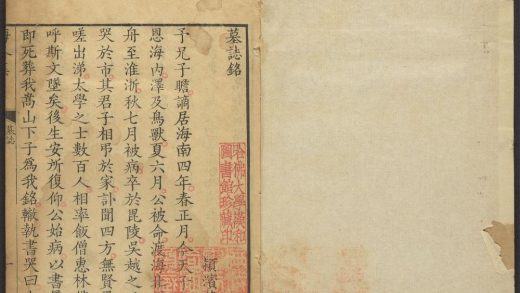 墓誌銘
潁濱
予兄子瞻謫居海南四年春正月今天
恩海內澤及鳥獸夏六月公被命渡海北
舟至淮浙秋七月被病卒於毘陵吳越之
哭於市其君子相弔於家訃聞四方無賢
嗟出涕太學之士數百人相率飯僧惠林
呼斯文墜矣後生安所復仰公始病以書
即死葬我嵩山下子爲我銘轍執書哭曰
墓誌
哈佛大學漢和
圖書館珍藏印